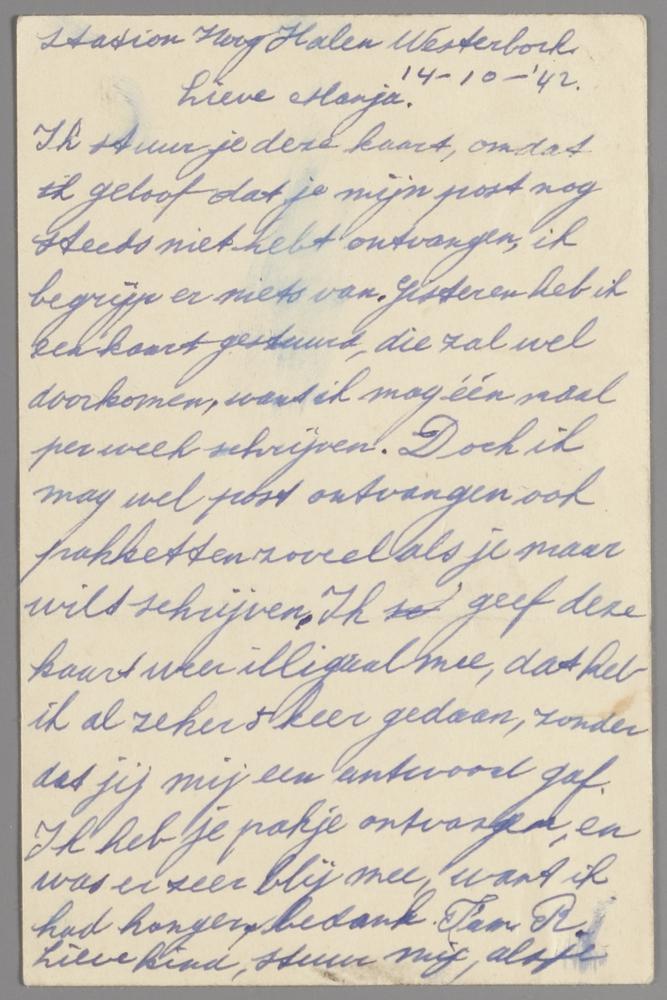 Station Hoog Halen Westerbork.
14-10-'42.
Lieve Manja.
Ik stuur je deze kaart, omdat
ik geloof dat je mijn post nog
steeds niet hebt ontvangen, ik
begrijp er niets van. Gisteren heb ik
een kaart gestuurd, die zal wel
doorkomen, want ik mag één maal
per week schrijven. Doch ik
mag wel post ontvangen ook
pakketten zoveel als je maar
wilt schrijven. Ik geef deze
kaart weer illigaal mee, dat heb
ik al zeker 8 keer gedaan, zonder
dat jij mij een antwoord gaf.
Ik heb je pakje ontvangen, en
was er zeer blij mee, want ik
had honger, bedank Fam. R.
Lieve kind, stuur mij, als je